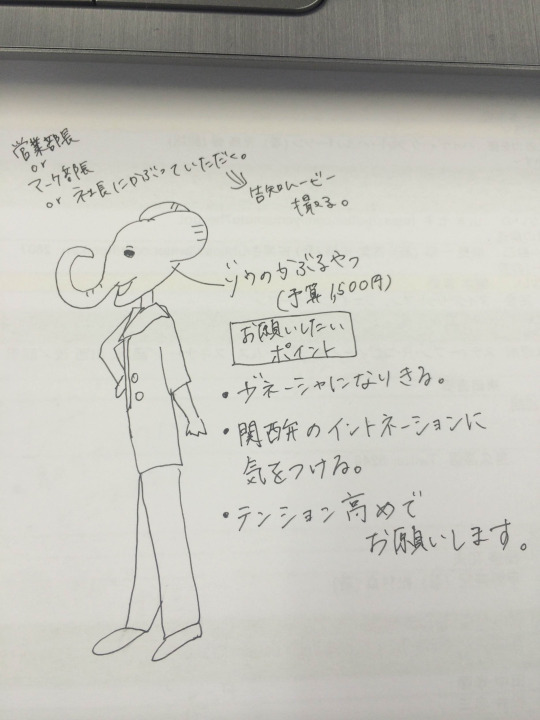 営業部長
or
マーケ部長
or 社長にかぶっていただく。
告知ムービー
撮る。
ゾウのかぶるやつ
(予算1,500円)
お願いしたい
ポイント
・ガネーシャになりきる。
・関西弁のイントネーションに
気をつける。
・テンション高めで
お願いします。